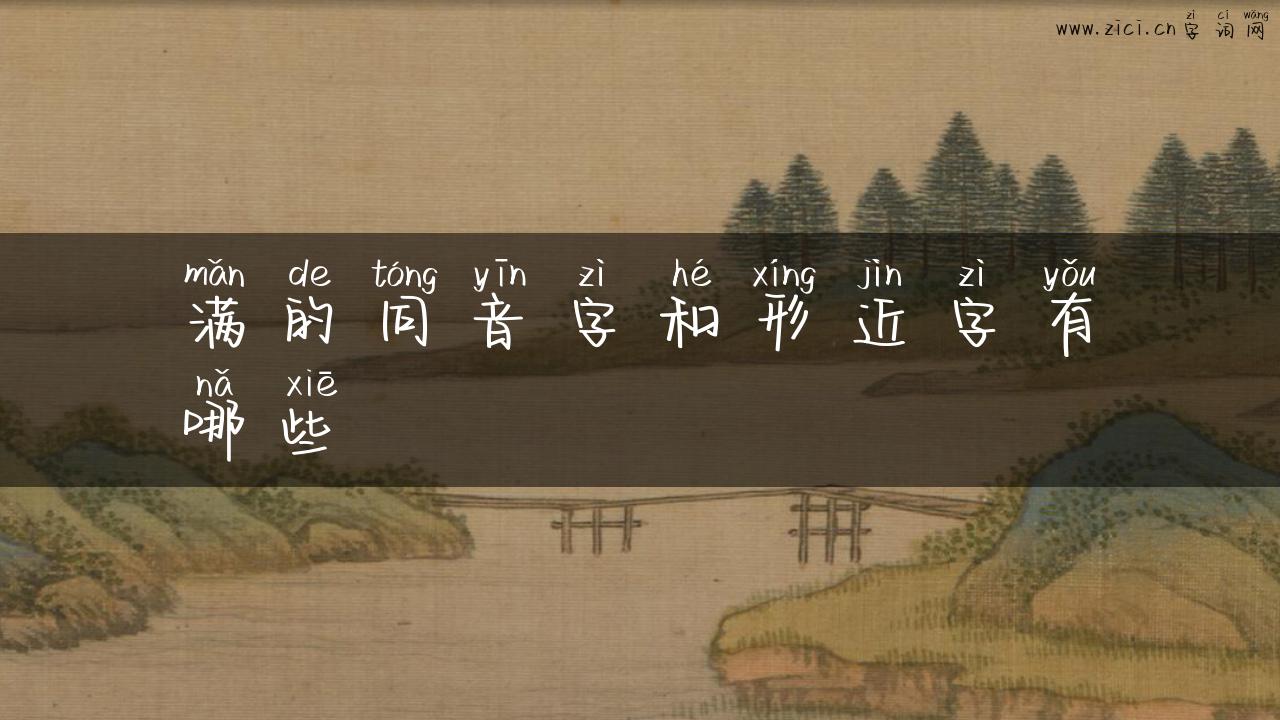 zì cí wǎng
www.zici.cn 字 词 网
mǎn de tóng yīn zì hé xíng jìn zì yǒu
满 的 同 音 字 和 形 近 字 有
nǎ xiē
哪 些